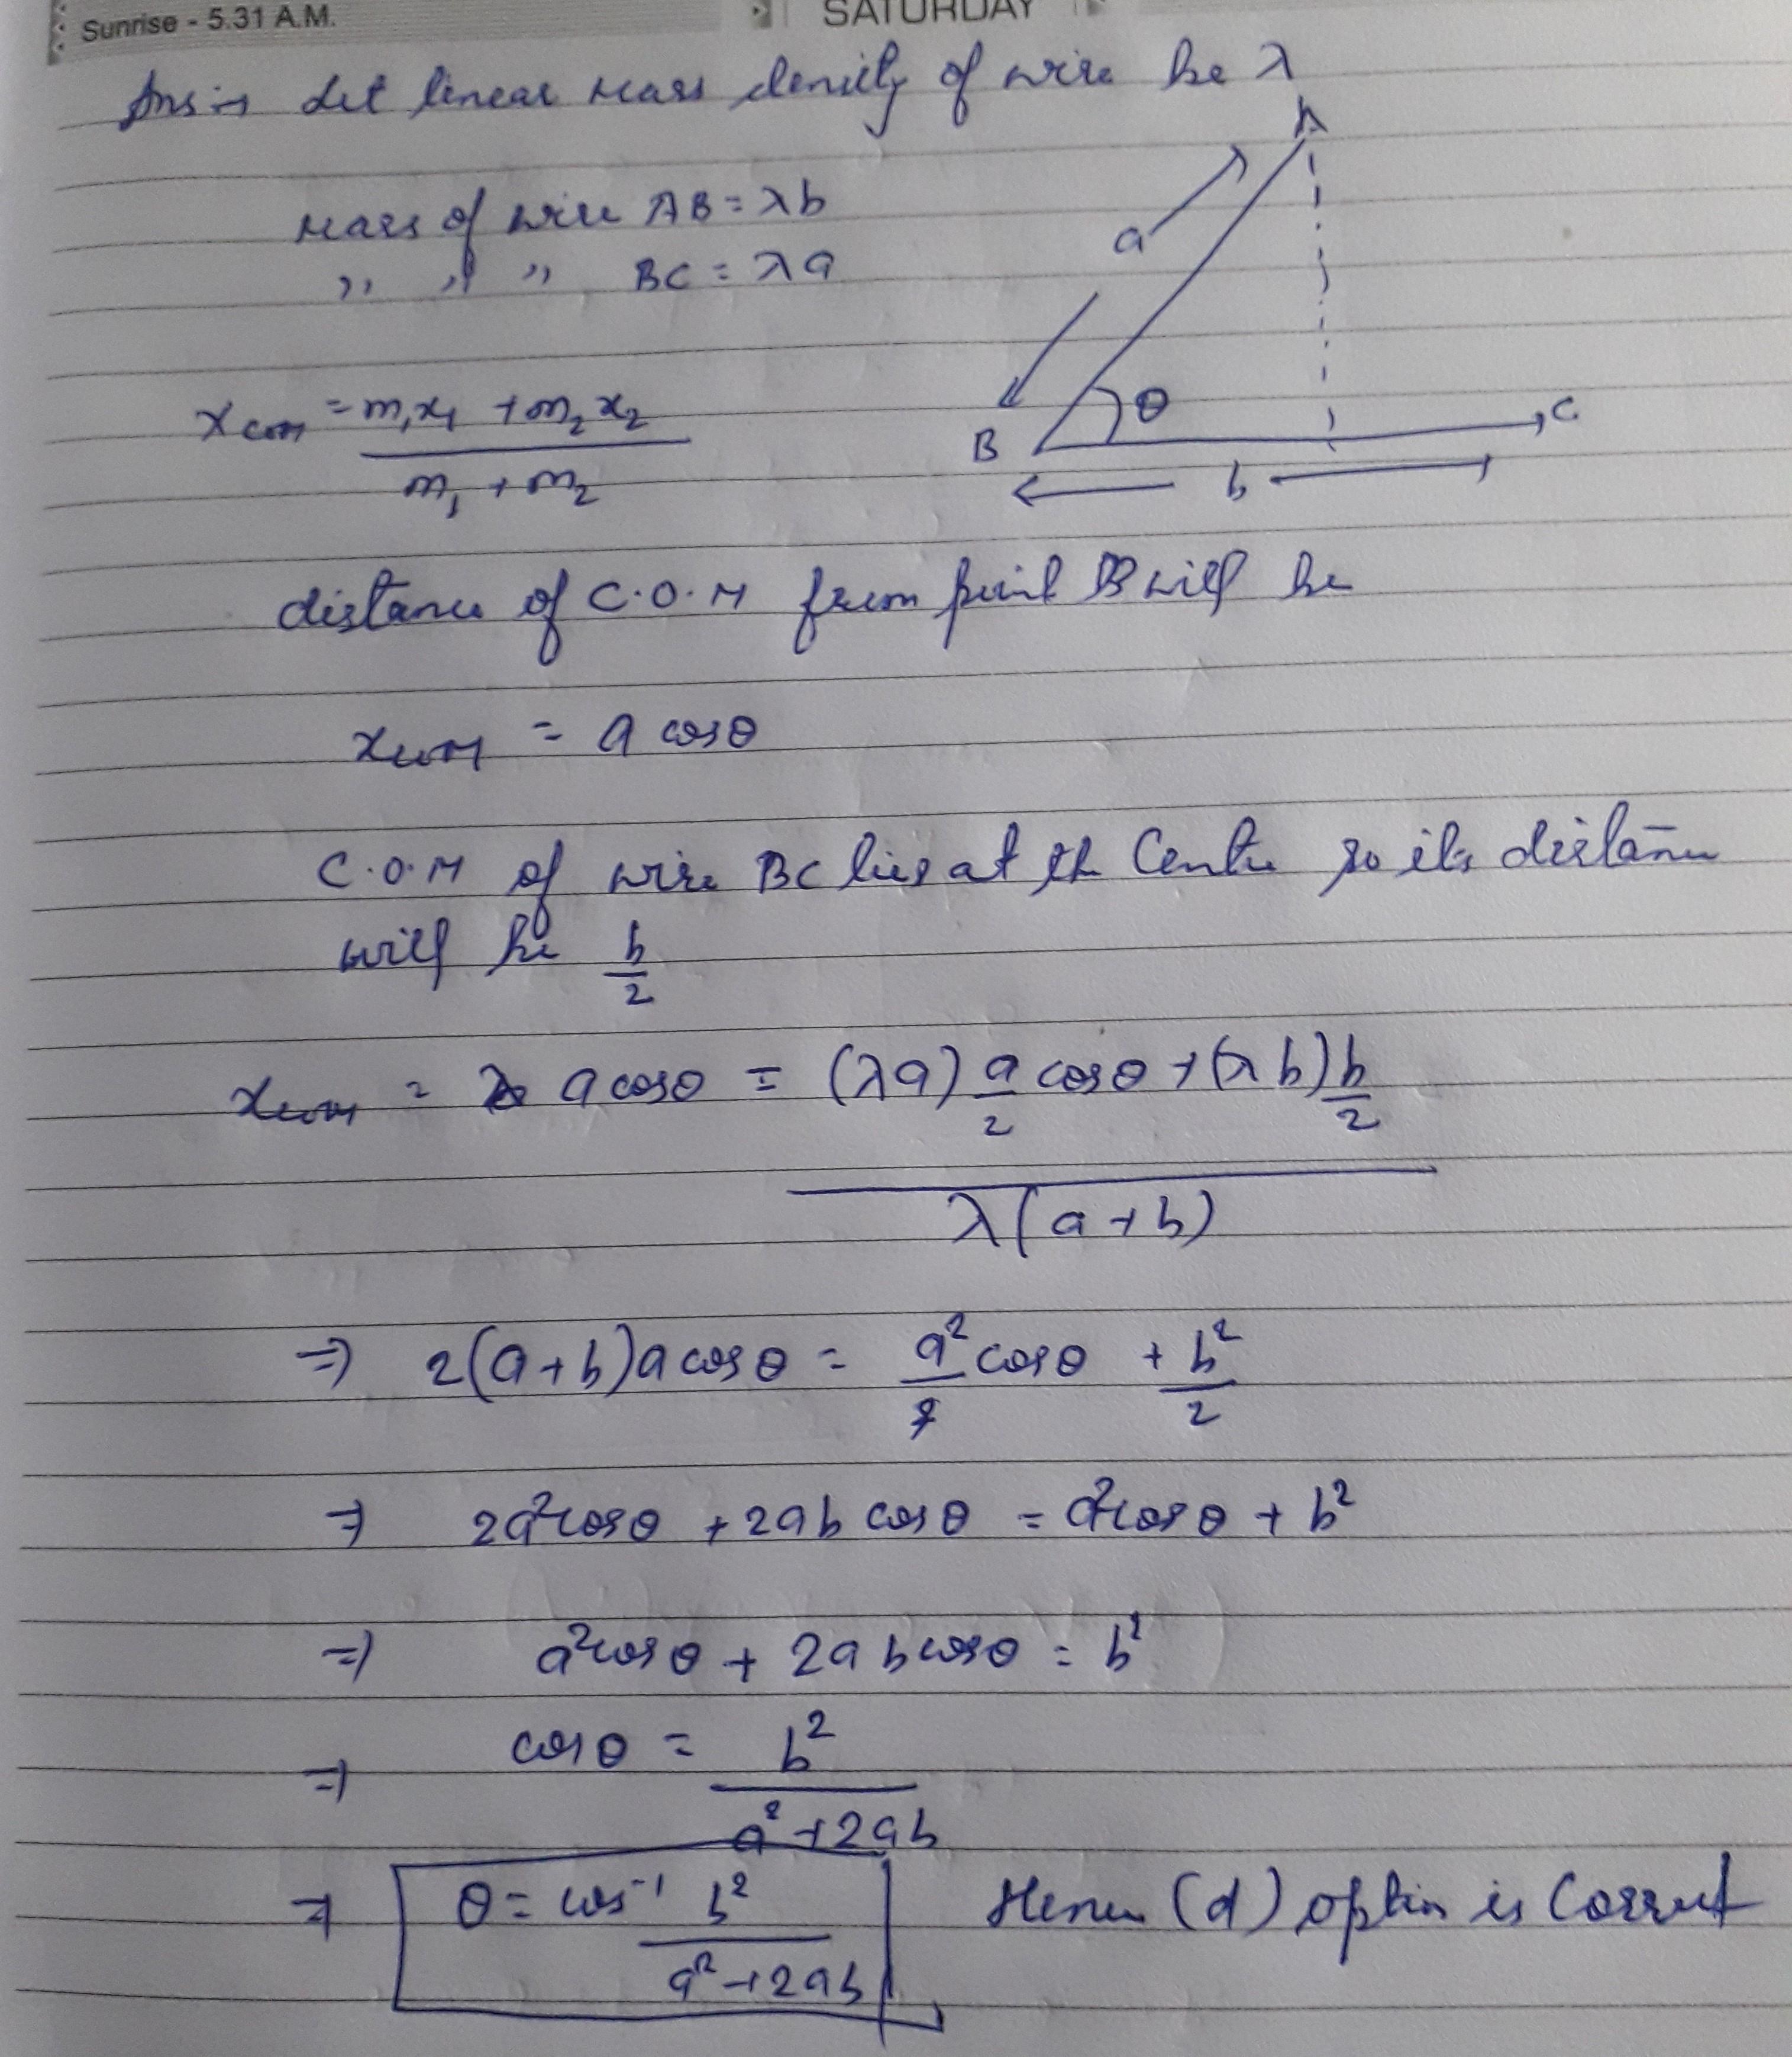 Sunrise - 5.31 A.M.
SATURDAY
Ans:→ Let linear mass density of wire be λ
A
mass of wire AB = λb
a
,, ,, ,, BC = λa
x com = m₁x₁ + m₂x₂
m₁ + m₂
θ
B
C
b
distance of C.O.M from point B will be
x com = a cosθ
C.O.M of wire BC lies at the Centre so its distance
will be b/2
x com = a cosθ = (λa) a/2 cosθ + (λb) b/2
λ(a+b)
⇒ 2(a+b)a cosθ = a²/2 cosθ + b²/2
⇒ 2a²cosθ + 2ab cosθ = a²cosθ + b²
⇒ a²cosθ + 2ab cosθ = b²
⇒ cosθ = b²
a²+2ab
⇒ θ = cos⁻¹ b²
a²+2ab
Hence (d) option is Correct